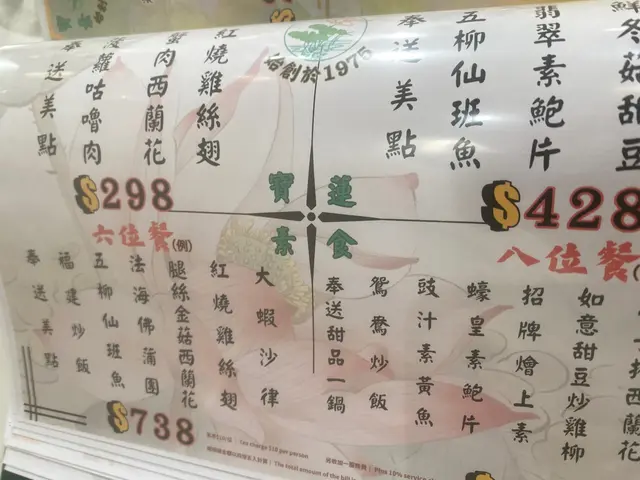 冬菇甜豆
翡翠素鮑片
五柳仙班魚
奉送美點
$428
始創於1975
紅燒雞絲翅
蟹肉西蘭花
菠蘿咕嚕肉
奉送美點
$298
寶蓮
素食
八位餐
西蘭花
如意甜豆炒雞柳
招牌燴上素
蠔皇素鮑片
豉汁素黃魚
鴛鴦炒飯
奉送甜品一鍋
六位餐(例)
大蝦沙律
紅燒雞絲翅
腿絲金菇西蘭花
法海佛蒲團
五柳仙班魚
福建炒飯
奉送美點
$738
Tea charge $10 per person
Plus 10% service
The total amount of the bill